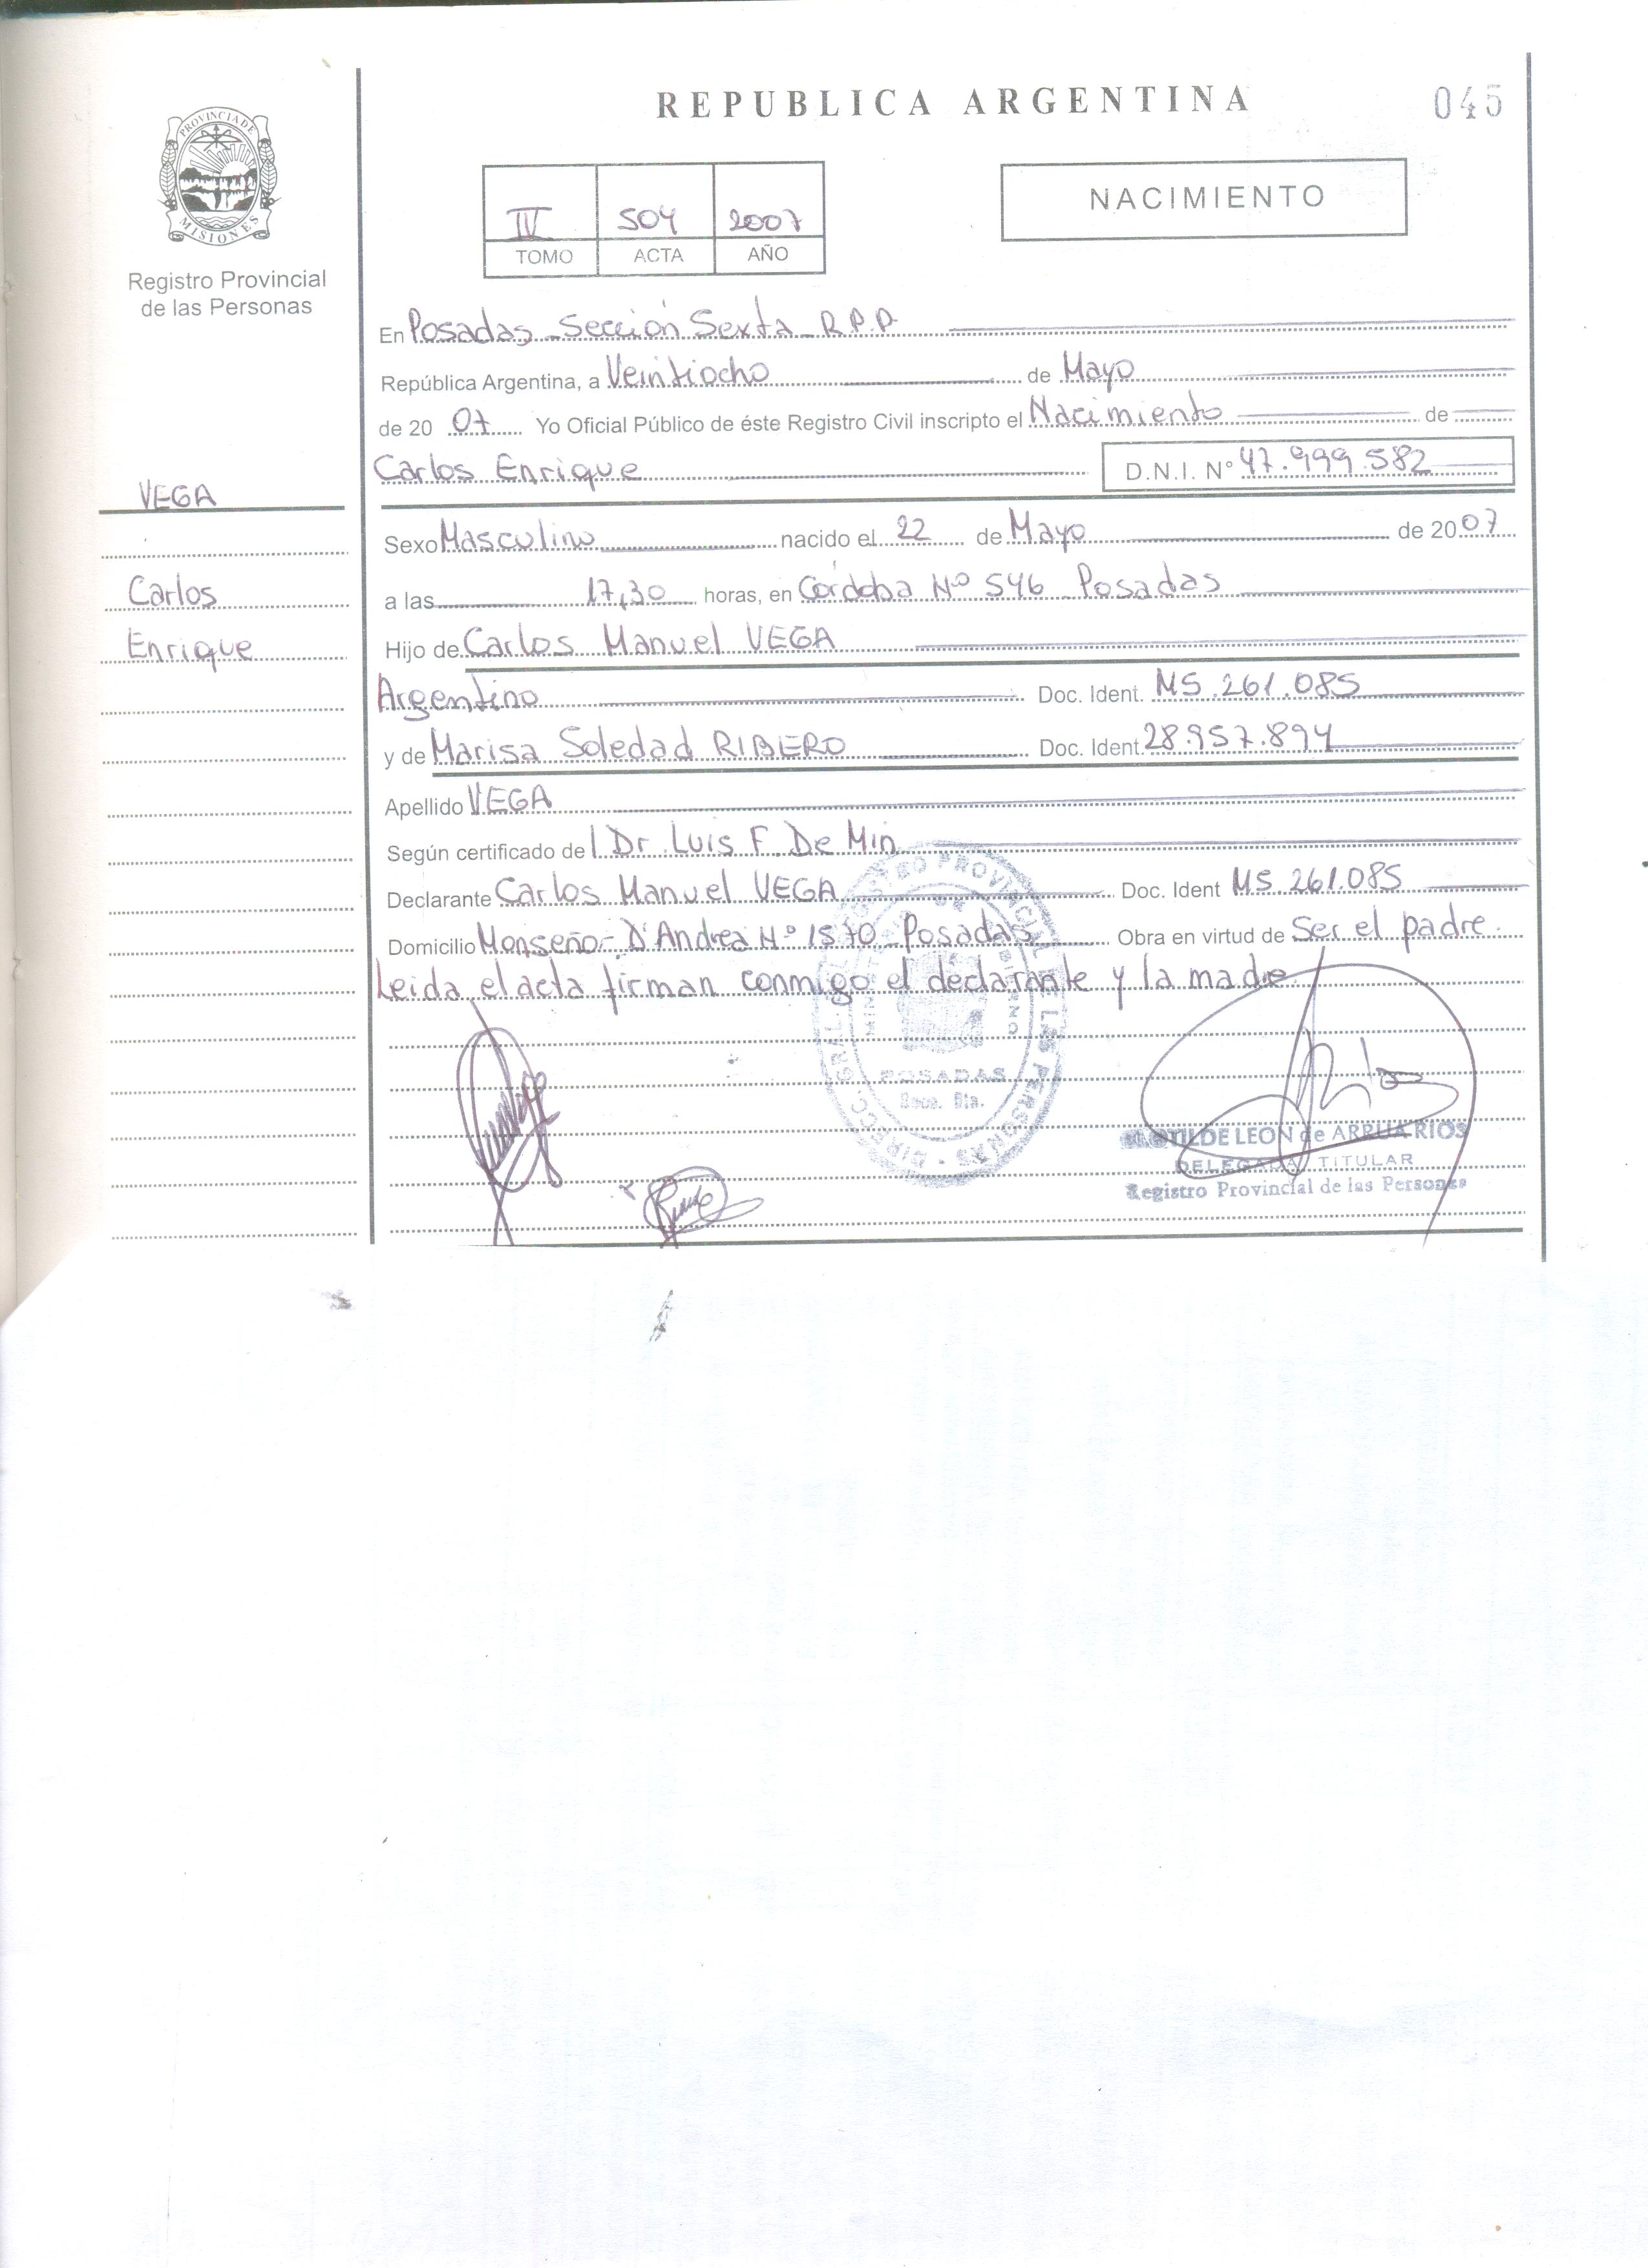 REPUBLICA ARGENTINA
045
PROVINCIA DE MISIONES
Registro Provincial
de las Personas
IV 504 2007
TOMO ACTA AÑO
NACIMIENTO
En Posadas - Sección Sexta - R.P.P.
República Argentina, a Veintiocho de Mayo
de 2007 Yo Oficial Público de éste Registro Civil inscripto el Nacimiento de
Carlos Enrique D.N.I. Nº 47.999.582
VEGA
Carlos
Enrique
Sexo Masculino nacido el 22 de Mayo de 2007
a las 17,30 horas, en Córdoba Nº 546 Posadas
Hijo de Carlos Manuel VEGA
Argentino Doc. Ident. M5.261.085
y de Marisa Soledad RIBERO Doc. Ident. 28.957.894
Apellido VEGA
Según certificado del Dr. Luis F. De Min
Declarante Carlos Manuel VEGA Doc. Ident M5.261.085
Domicilio Monseño- D'Andrea Nº 1570 - Posadas Obra en virtud de Ser el padre.
Leida el acta firman conmigo el declarante y la madre
REGISTRO PROVINCIAL DE LAS PERSONAS
POSADAS
DE LEON de ARRUA RIOS
DELEGADA TITULAR
Registro Provincial de las Personas